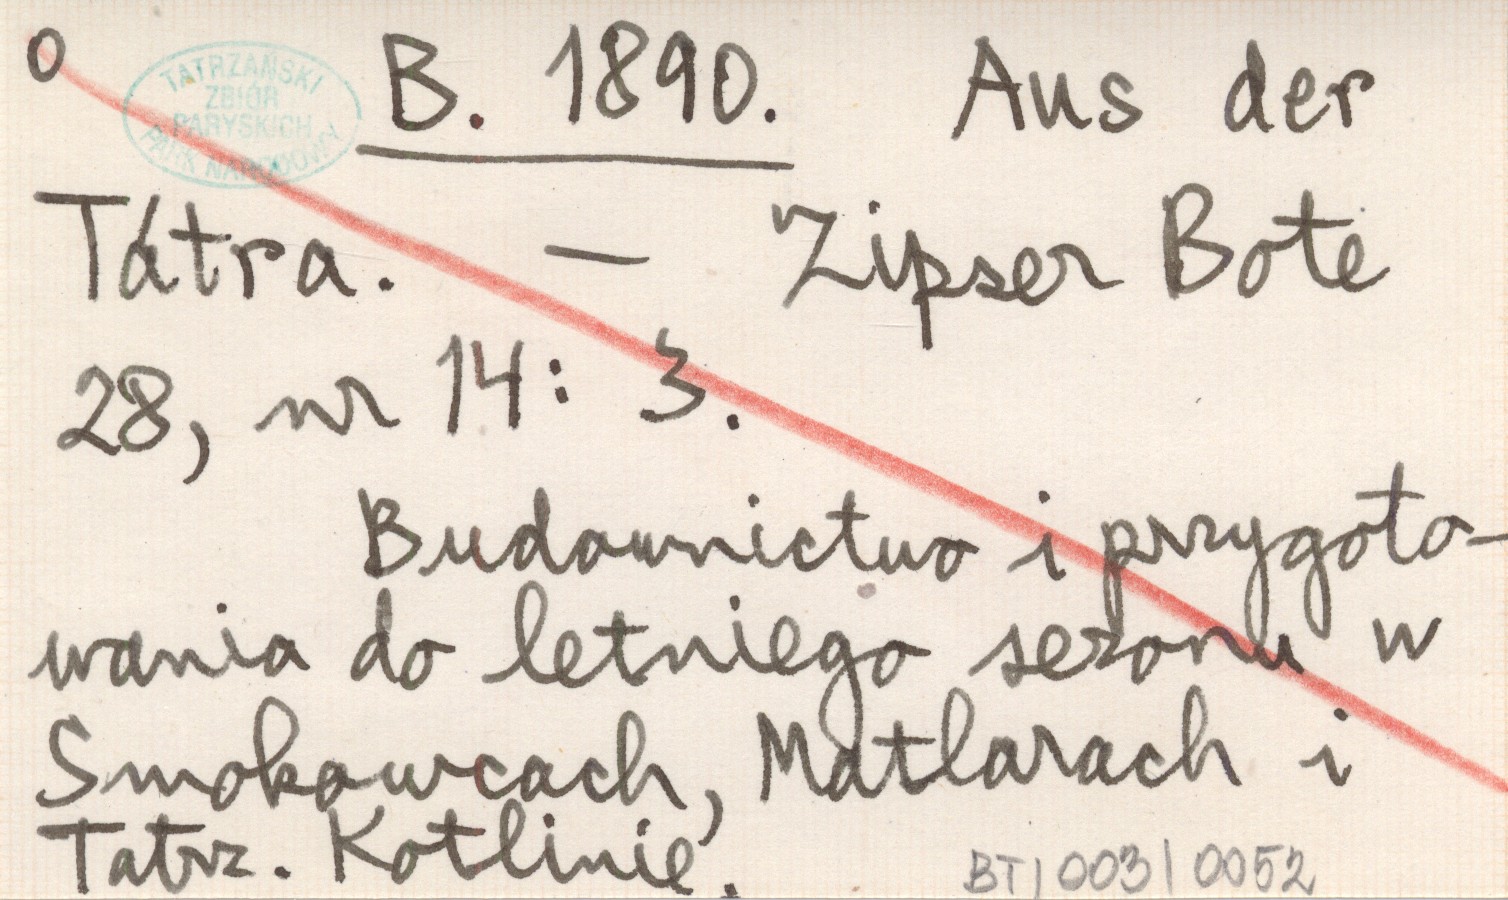 O
TATRZAŃSKI
ZBIÓR
PARYSKICH
PARK NARODOWY
B. 1890. Aus der
Tátra. — Zipser Bote
28, nr 14: 3.
Budownictwo i przygoto-
wania do letniego sezonu w
Smokowcach, Matlarach i
Tatrz. Kotlinie.
BT/003/0052